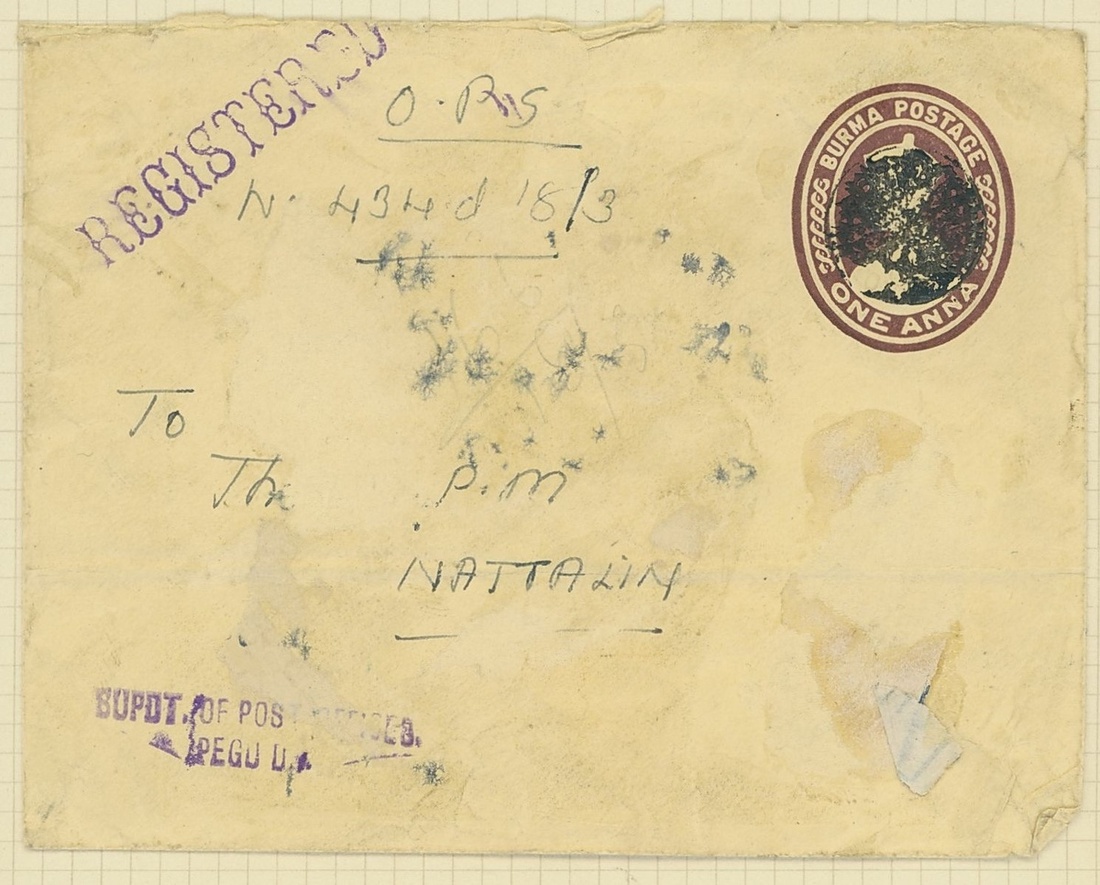 REGISTERED
O.P.S
BURMA POSTAGE
ONE ANNA
N. 434 d 18/3
To
The P.M
NATTALIN
SUPDT. OF POST OFFICES.
PEGU